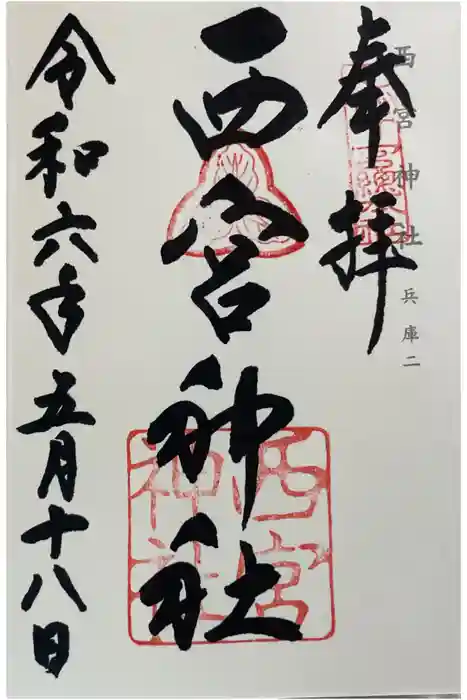 西宮神社 兵庫二
奉拝
西宮神社
令和六年五月十八日
西宮
神社